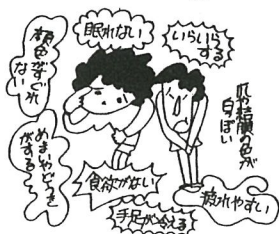 顔色がすぐれ
ない
眠れない
いらいら
する
爪や粘膜の色が
白っぽい
めまいやどうき
がする
食欲がない
手足が冷える
疲れやすい